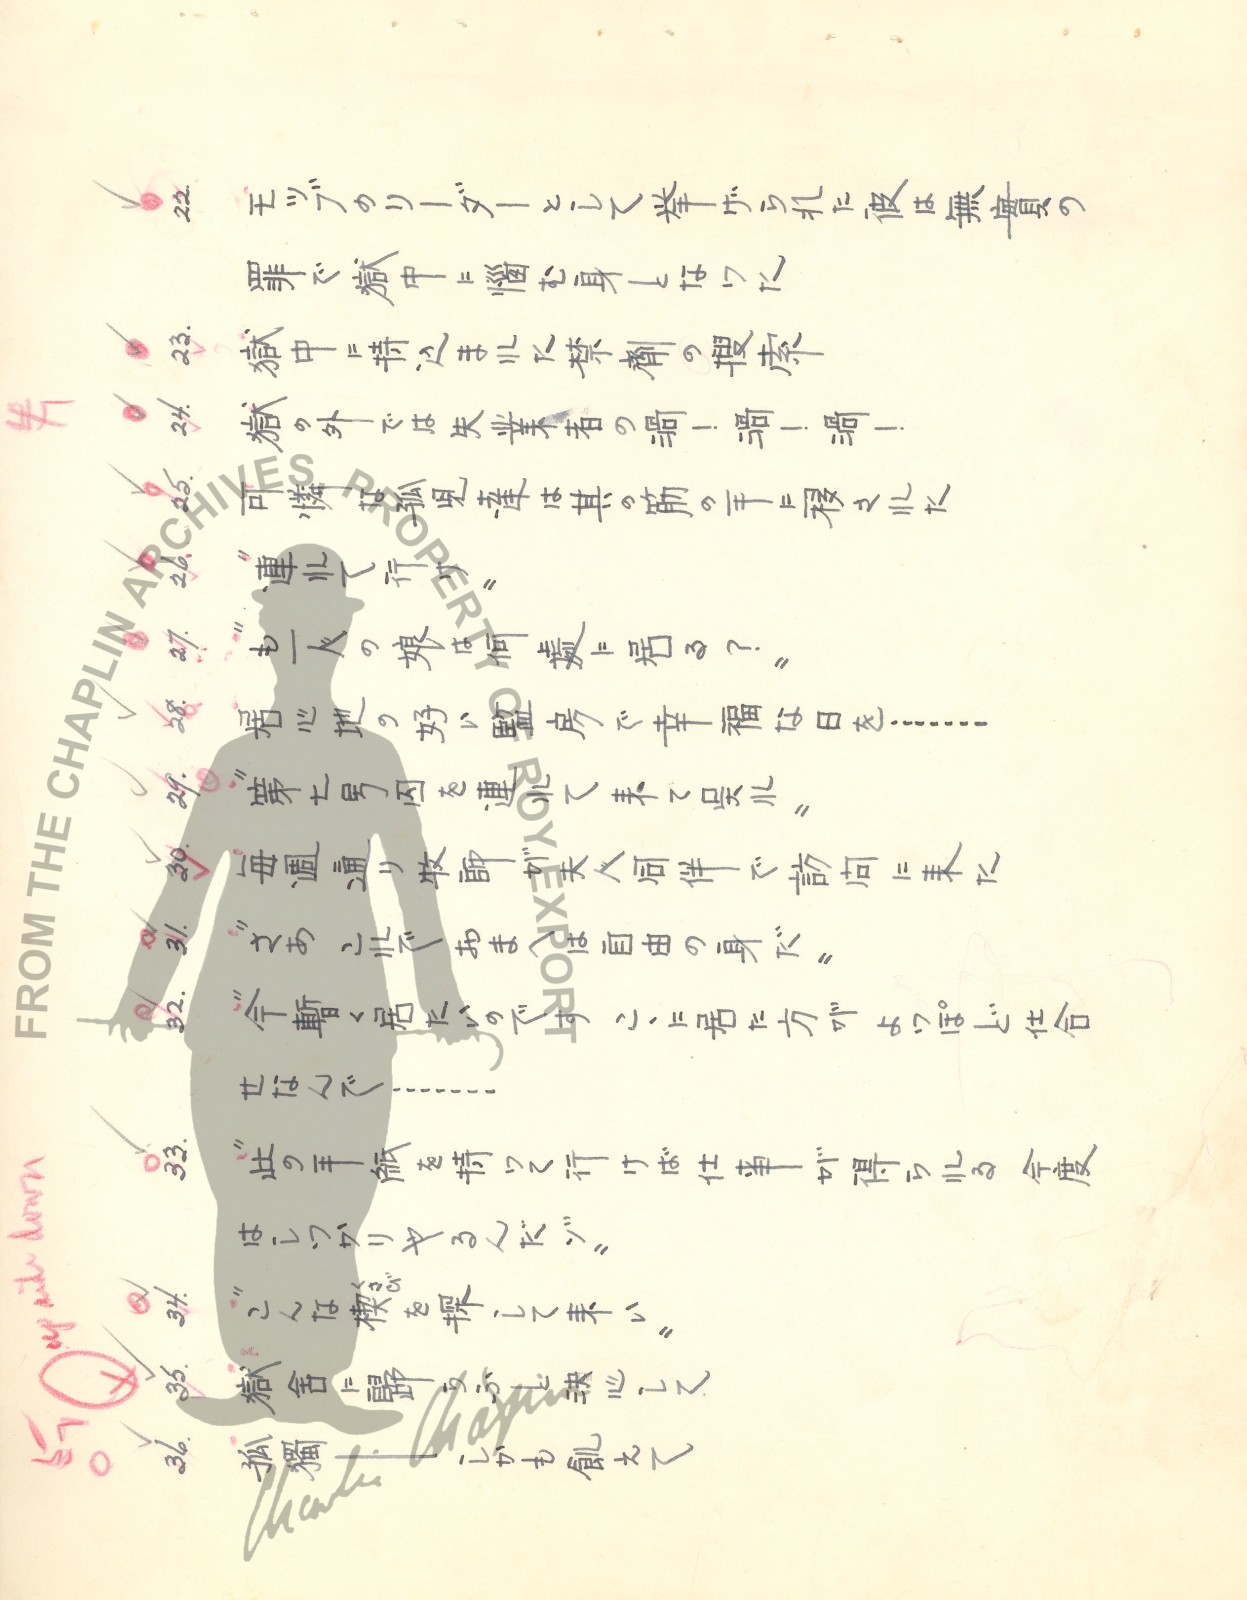 22. モッブのリーダーとして挙げられた彼は無實の
罪で獄中に惱む身となつた
23. 獄中に持込まれた禁劑の捜索
24. 獄の外では失業者の渦! 渦! 渦!
25. 可憐な孤児達は其の筋の手に移された
26. 〝連れて行け〟
27. 〝も一人の娘は何處に居る?〟
28. 居心地の好い監房で幸福な日を‥‥‥‥
29. 〝第七号囚を連れて来て呉れ〟
30. 毎週通り牧師が夫人同伴で訪問に来た
31. 〝さあ これでおまへは自由の身だ〟
32. 〝今暫く居たいのです こゝに居た方が よつぽど仕合
せなんで‥‥‥‥
33. 〝此の手紙を持つて行けば仕事が得られる 今度
はしつかりやるんだゾ〟
34. 〝こんな楔くさびを探して来い〟
35. 獄舎に歸らふと決心して
36. 孤獨――しかも飢えて
up side down
FROM THE CHAPLIN ARCHIVES PROPERTY OF ROY EXPORT
Charlie Chaplin